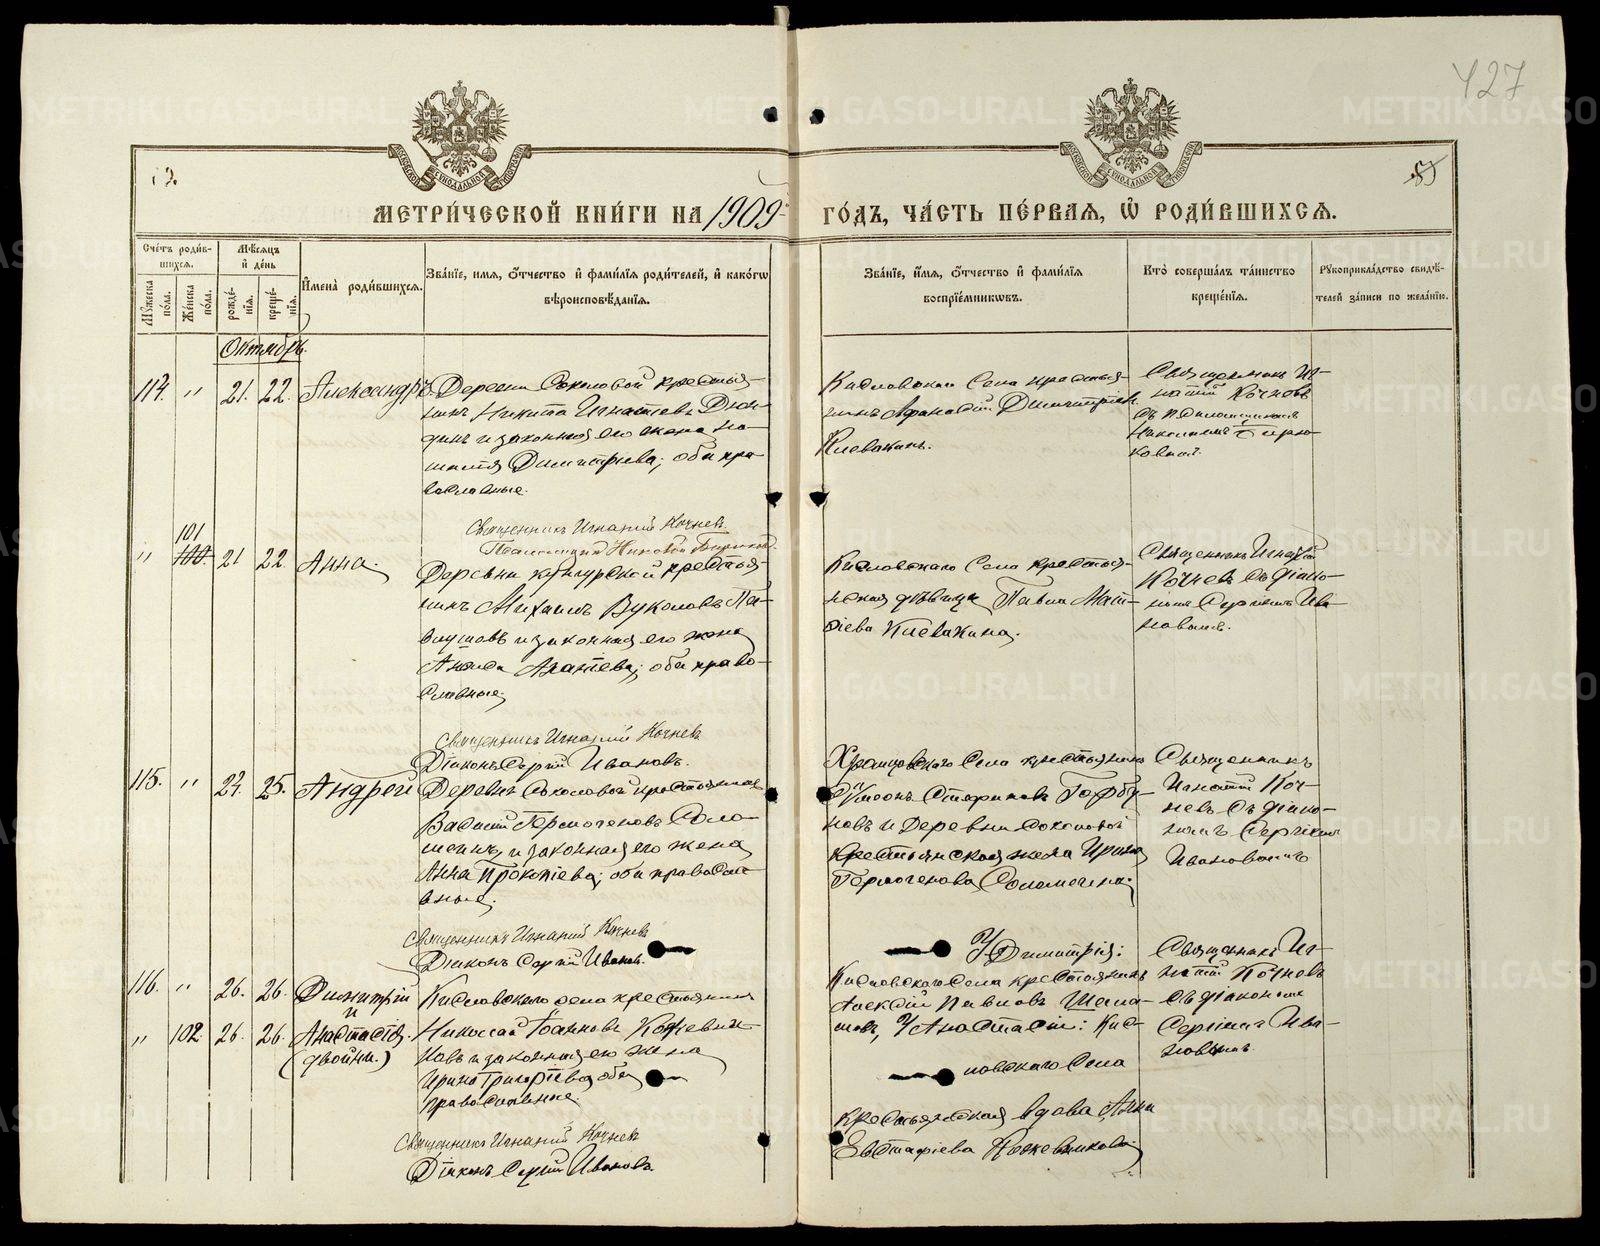 427
МЕТРИ́ЧЕСКОЙ КНИ́ГИ НА 1909 ГО́ДЪ, ЧА́СТЬ ПЕ́РВАЯ, Ѡ҆ РОДИ́ВШИХСЯ.
Сче́тъ роди́в-
шихся.
Мꙋжеска по́ла.
Же́нска по́ла.
Мѣ́сяцъ и҆ де́нь
рожде́-
нїя.
креще́-
нїя.
И҆мена̀ роди́вшихся.
Зва́нїе, и҆мя, ѻ҆́тчество и҆ фами́лїя роди́телей, и҆ како́гѡ
вѣроисповѣ́данїя.
Зва́нїе, и҆́мя, ѻ҆́тчество и҆ фами́лїя
воспрїе́мникѡвъ.
Кто̀ соверша́лъ та́инство
креще́нїя.
Рꙋкоприкла́дство свидѣ́-
телей за́писи по жела́нїю.
Октябрь.
114. " 21. 22. Александръ.
Деревни Соколовой крестья-
нинъ Никита Игнатiевъ
и законная его жена
Димитрiева; оба пра-
вославные.
Священникъ Игнатiй Кочневъ
Кисловскаго Села крестья-
нинъ Афанасiй Димитрiевъ
Клевакинъ.
Священникъ Иг-
натiй Кочневъ
съ псаломщикомъ
Николаемъ Бирю-
ковымъ.
" 101 100. 21 22. Анна.
Деревни крестья-
нинъ Михаилъ Вуколовъ
и законная его жена
оба право-
славные.
Священникъ Игнатiй Кочневъ
Дiаконъ Сергiй Ивановъ.
Кисловскаго Села крестья-
нская дѣвица Павла Мат-
ѳiева Клевакина.
Священникъ Игнатiй
Кочневъ съ дiако-
номъ Сергiемъ Ива-
новымъ.
115. " 24. 25. Андрей
Деревни Соколовой крестьянинъ
Василiй Гермогеновъ Соло-
меинъ, и законная его жена
Анна Прокопiева; оба правосла-
вные.
Священникъ Игнатiй Кочневъ
Дiаконъ Сергiй Ивановъ.
Храмцовскаго Села крестьянинъ
Горбу-
новъ и Деревни Соколовой
крестьянская жена Ирина
Гермогенова Соломеина.
Священникъ
Игнатiй Коч-
невъ съ дiако-
номъ Сергiемъ
Ивановымъ
116. " 26. 26. Димитрiй
и
" 102 26. 26. Анастасiя.
(двойни.)
Кисловскаго села крестьянинъ
Николай Iоанновъ Кожевни-
ковъ и законная его жена
Ирина Григорiева, оба
православные.
Священникъ Игнатiй Кочневъ
Дiаконъ Сергiй Ивановъ.
У Димитрiя:
Кисловскаго Села крестьянинъ
Алексiй Павловъ Шала-
мовъ, У Анастасiи: Кис-
ловскаго Села
крестьянская вдова Анна
Евстафiева Кожевникова.
Священникъ Иг-
натiй Кочневъ
съ дiакономъ
Сергiемъ Ива-
новымъ.
METRIKI.GASO-URAL.RU